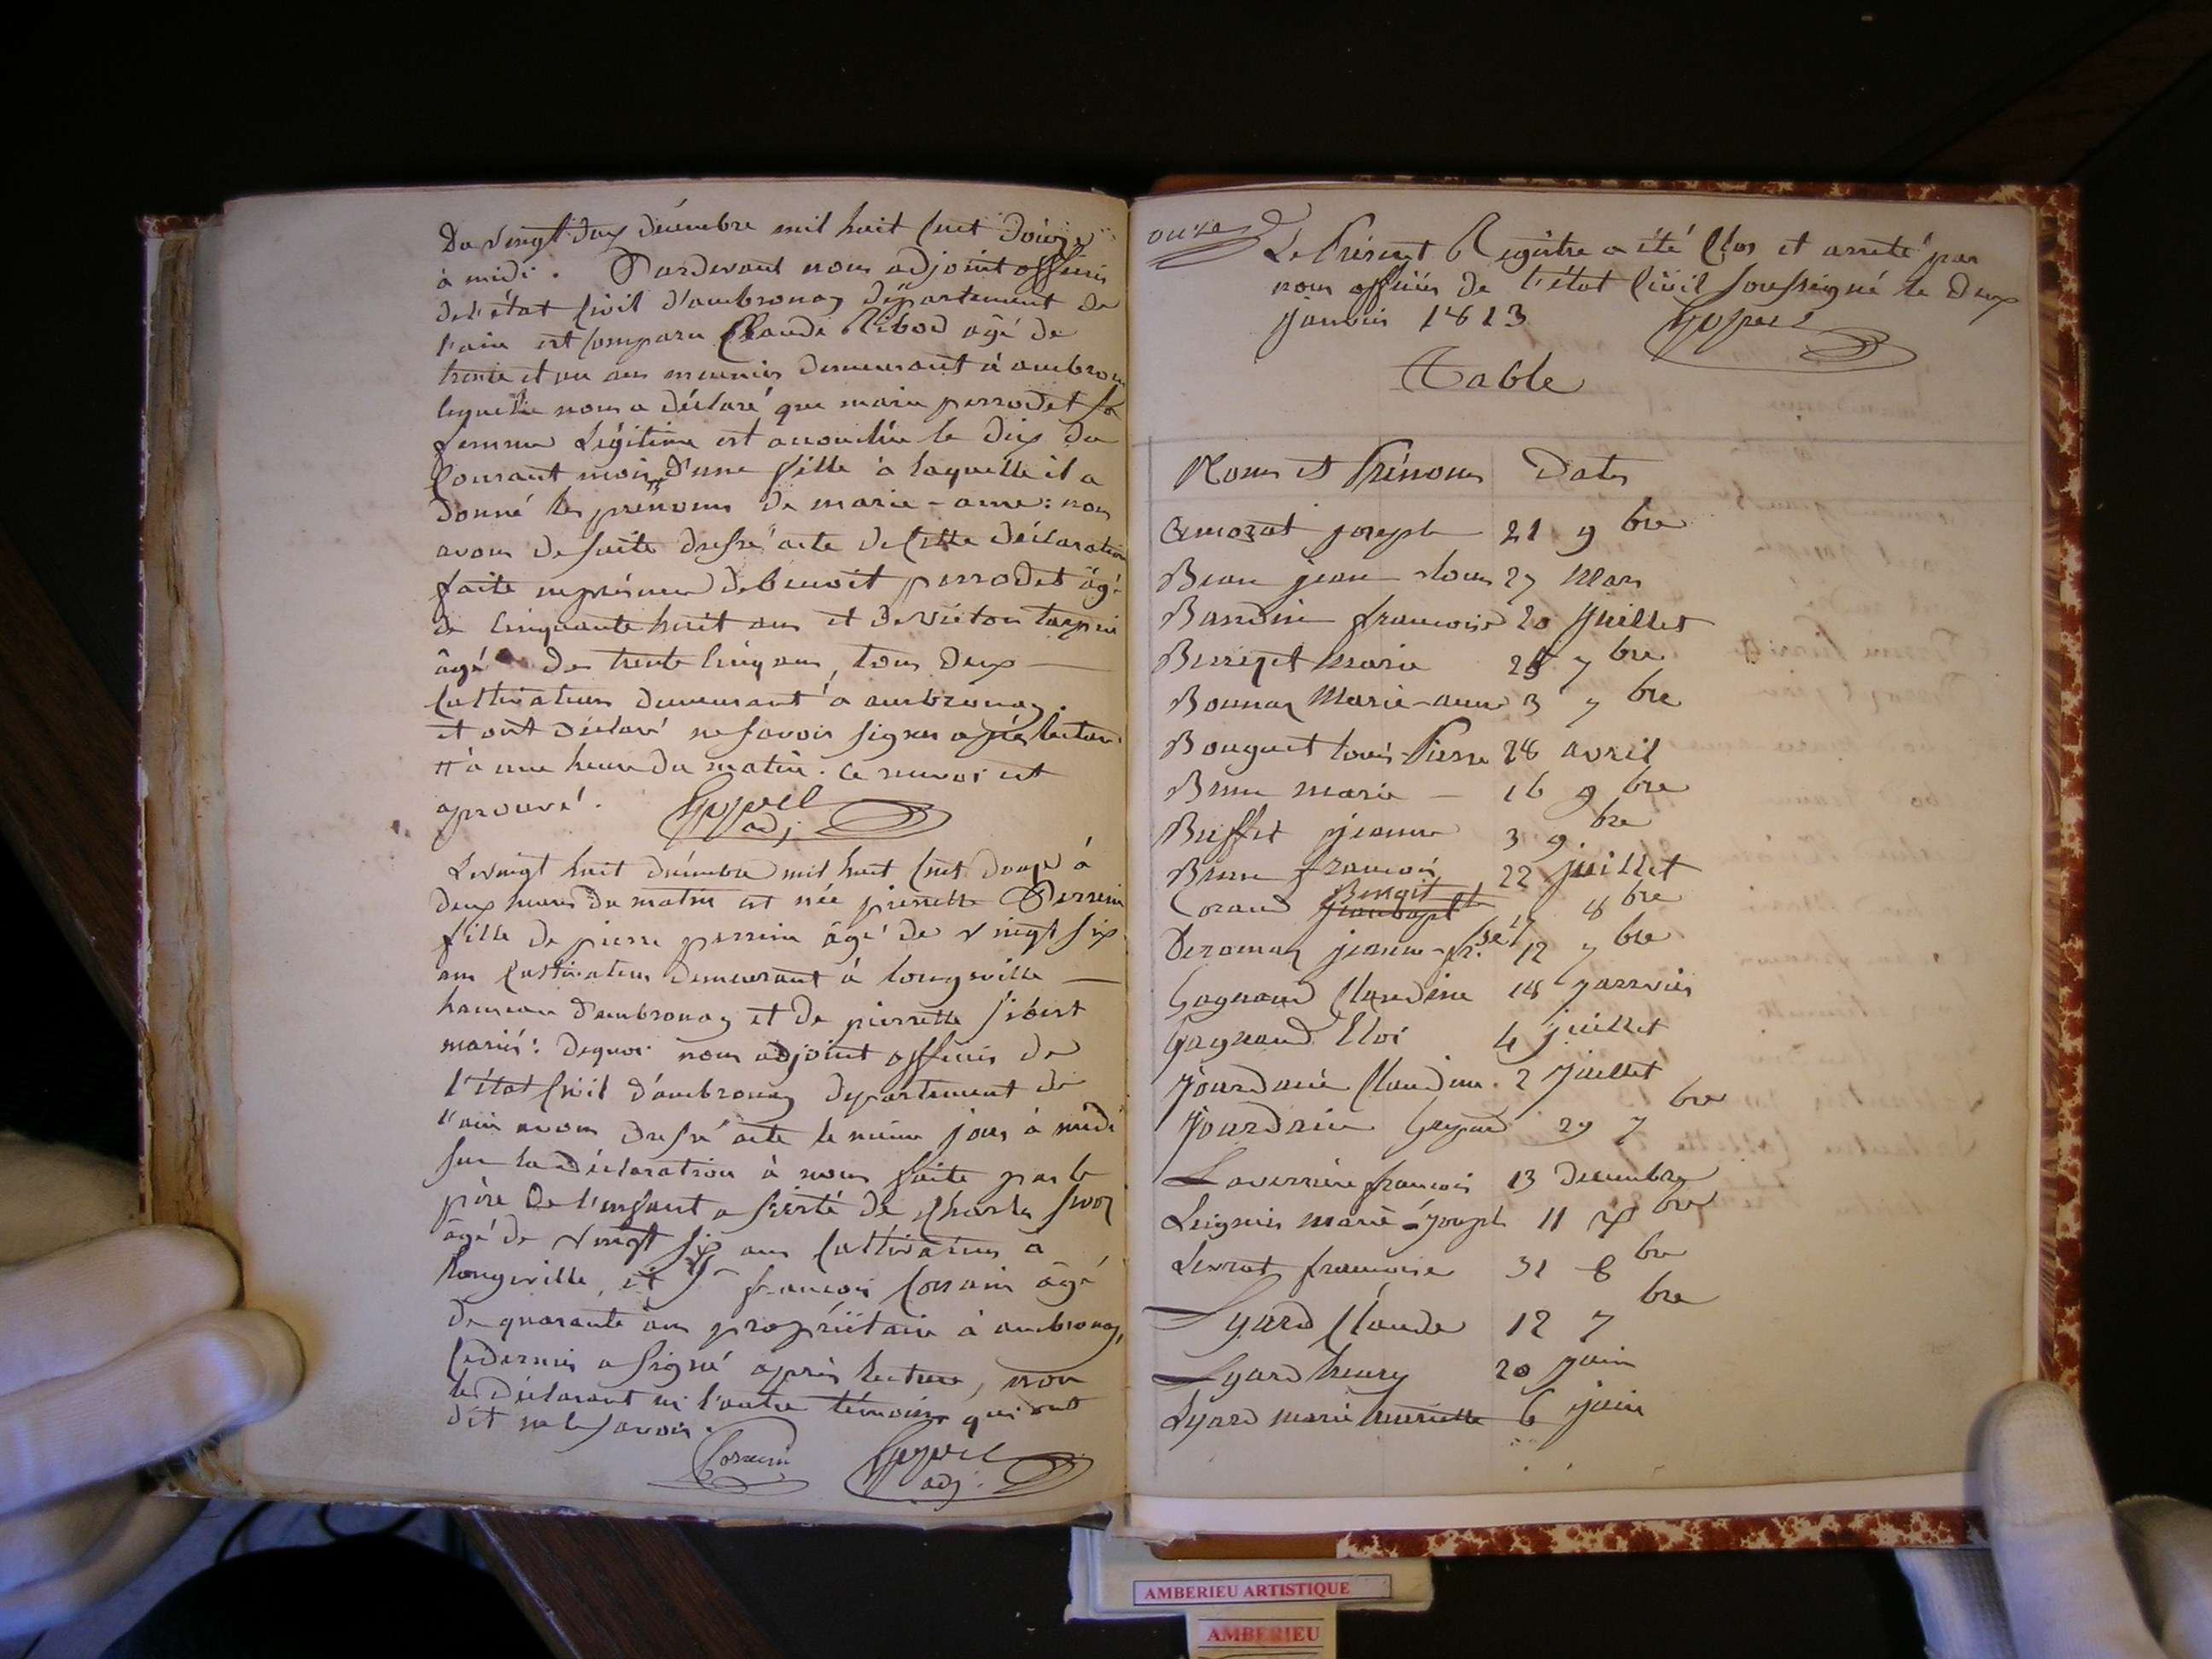 Du vingt deux décembre mil huit cent douze
à midi. Pardevant nous adjoint officier
de l'état civil d'ambronay département de
l'ain est comparu Claude Ribod agé de
trente et un ans meunier demeurant à ambronay
lequel nous a déclaré que marie perrodet sa
femme Légitime est accouchée le dix du
Courant mois d'une fille à laquelle il a
donné les prénoms de marie-anne: nous
avons de suite dressé acte de cette déclaration
faite en présence de benoit perrodet âgé
de cinquante huit ans et de
âgé de trente cinq ans, tous deux
cultivateurs demeurant à ambronay.
et ont déclaré ne savoir signer après lecture
# à une heure du matin. ce renvoi est
aprouvé.
adj.
Le vingt huit décembre mil huit cent douze à
deux heures du matin est née pierrette Perrin
fille de pierre perrin âgé de vingt six
ans cultivateur demeurant à longeville
hameau d'ambronay et de pierrette sibert
mariés: dequoi nous adjoint officier de
l'état civil d'ambronay département de
l'ain avons dressé acte le même jour à midi
sur la déclaration à nous faite par le
père De l'enfant assisté de Charles
âgé de vingt six ans cultivateur à
longeville, et Sr françois Corrain âgé
de quarante ans propriétaire à ambronay,
ce dernier a signé après lecture, non
le déclarant ni l'autre témoin qui ont
dit ne le savoir.
Corrain
adj.
onze
Le Présent Registre a été Clos et arreté par
nous officier de l'état Civil soussigné le deux
janvier 1813
Table
Noms et Prénoms Dates
joseph 21 9bre
Beau jean-louis 27 Mars
Bandin françoise 20 juillet
marie 7bre
Bonnaz Marie-anne 3 7bre
Bouguet louis-Pierre 28 avril
Brun marie - 16 9bre
Buffet jeanne 3 9bre
Brun françois 22 juillet
Coraud Benoit 17 8bre
Deromaz jeanne-fr.se 12 7bre
Gagnaud Claudine 18 janvier
Gagnaud Eloi 4 juillet
Jourdain Claudine. 2 Juillet
Jourdain Gaspard 29 7bre
Laverrière françois 13 Decembre
marie-Joseph 11 bre
Levrat françoise 31 8bre
Lyard Claude 12 7bre
Lyard henry 20 juin
Lyard marie 6 juin
AMBERIEU ARTISTIQUE
AMBERIEU